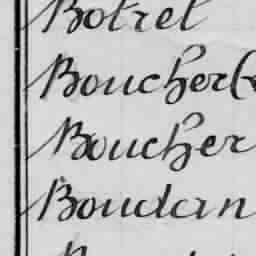 Botrel
Boucher (
Boucher
Boudan